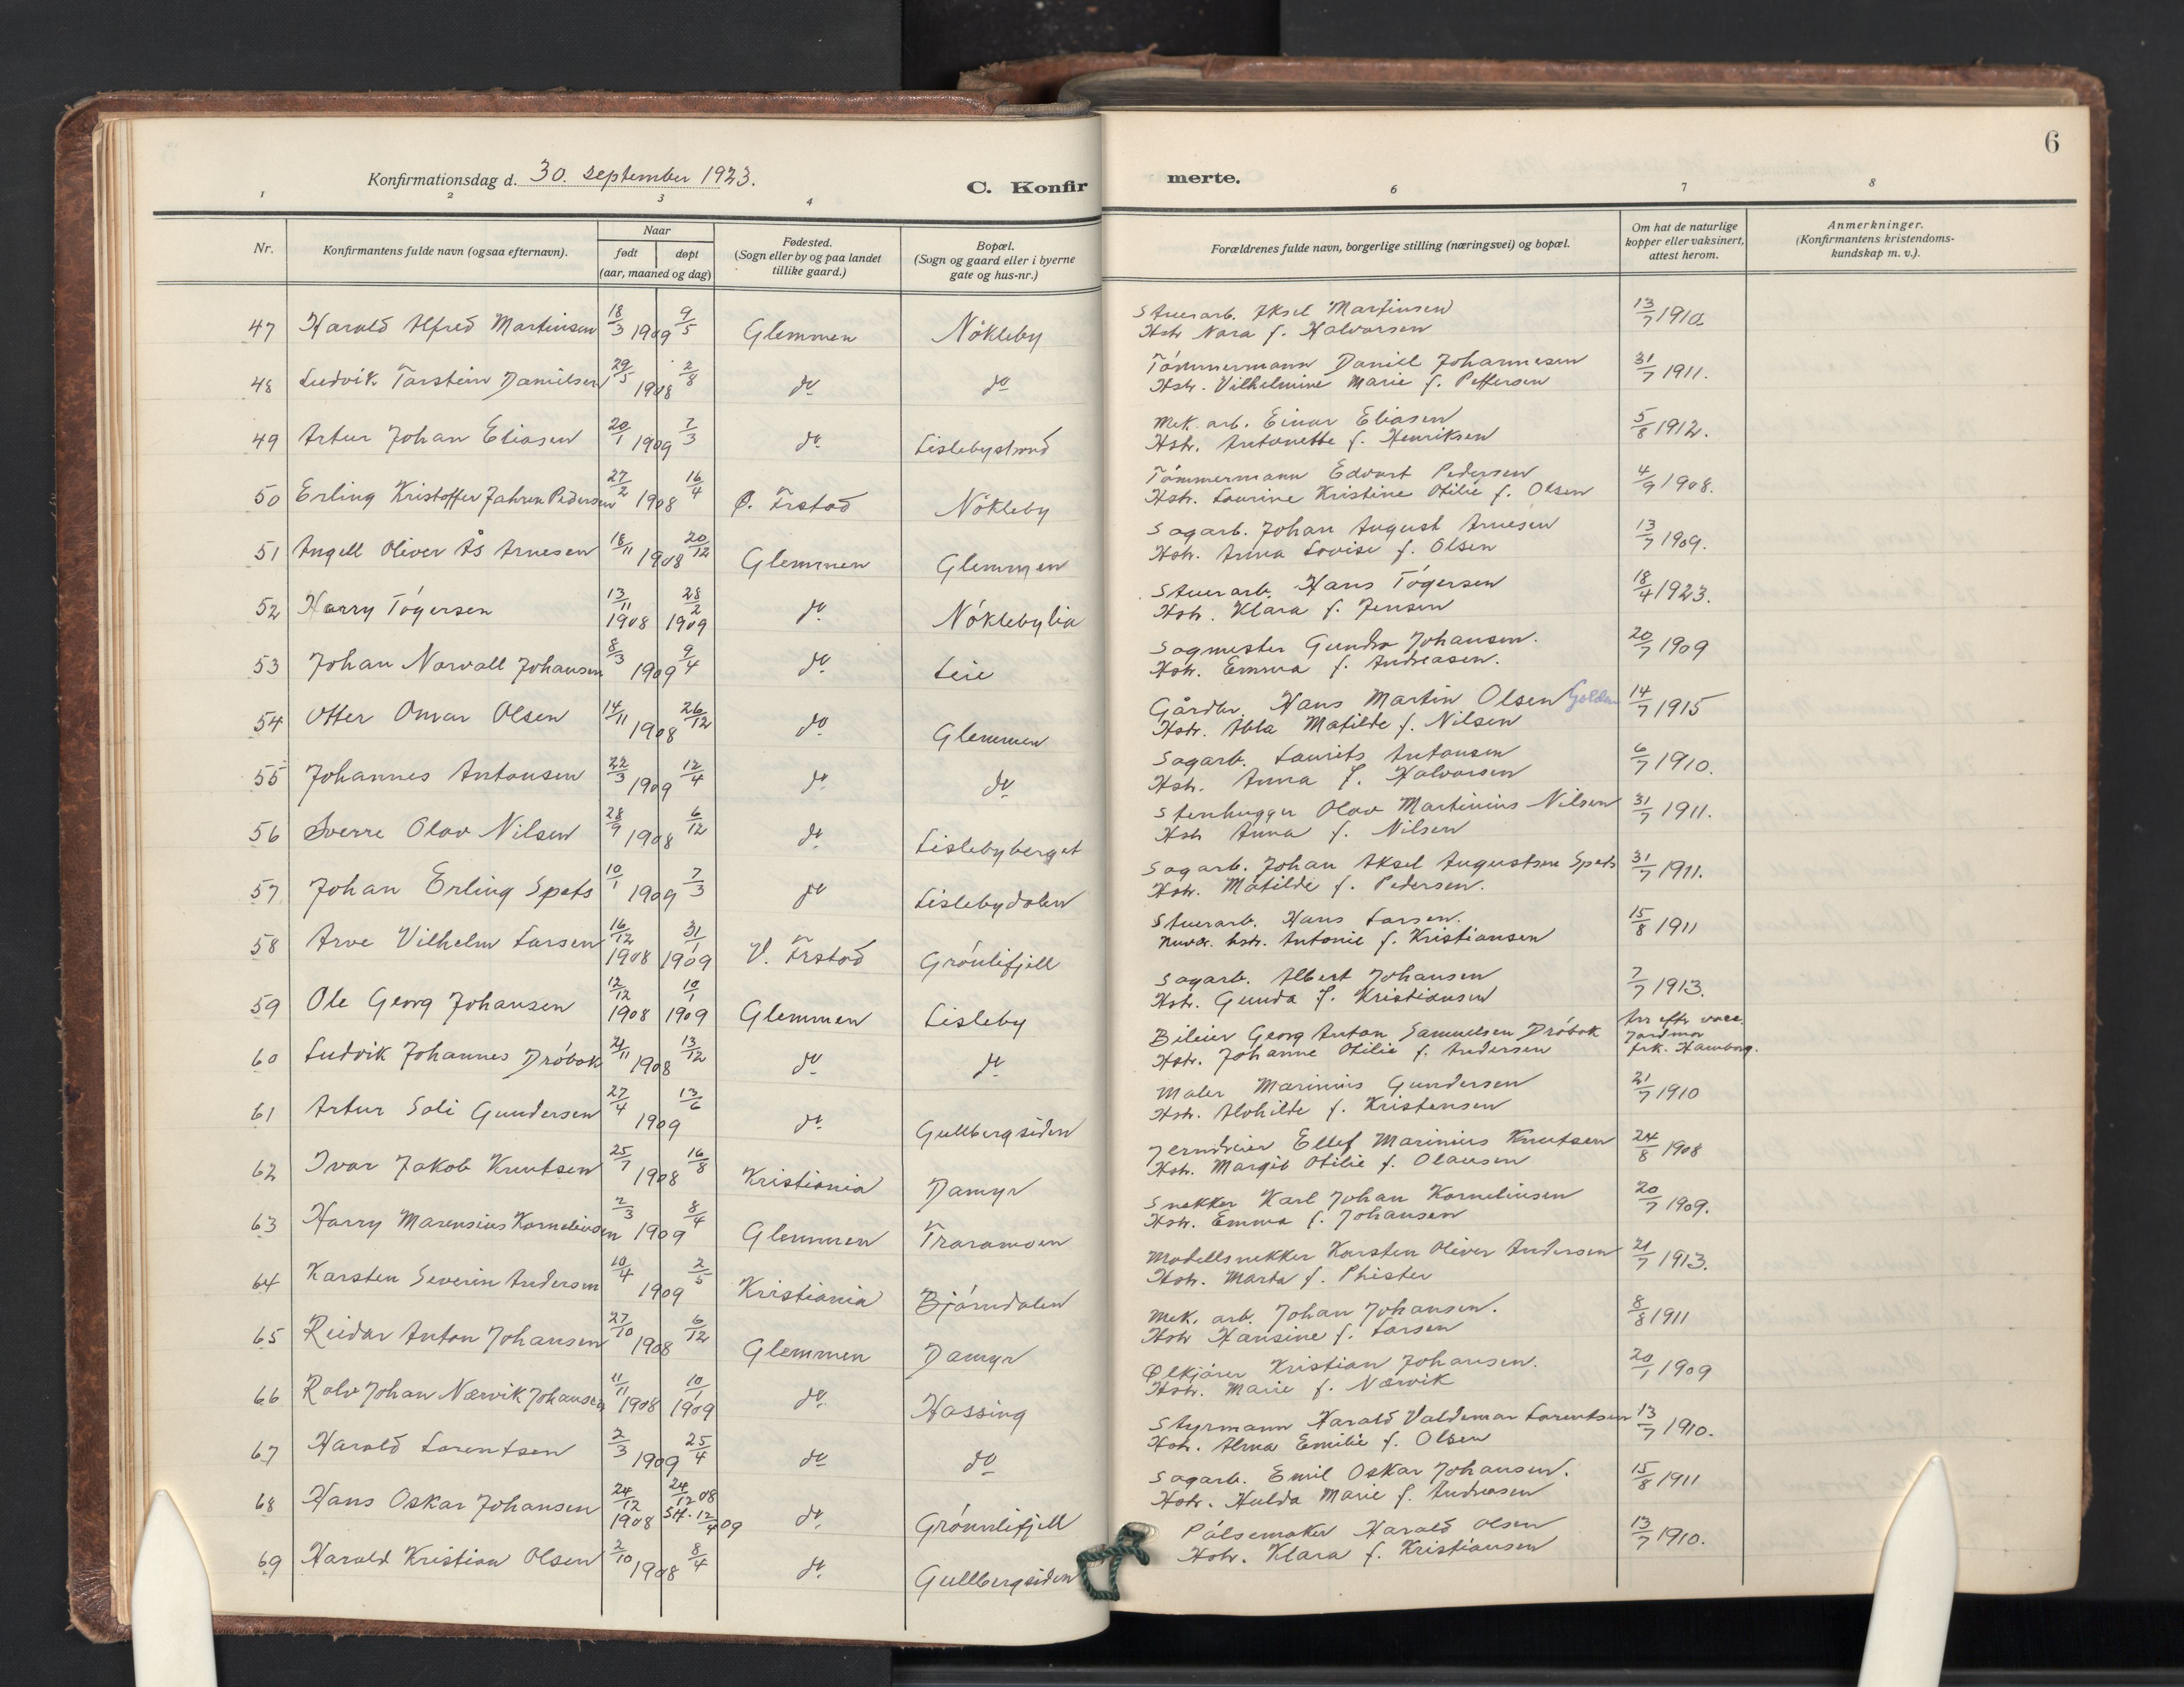 6
Konfirmationsdag d. 30. september 1923.
C. Konfirmerte.
1 2 3 4 6 7 8
Nr.
Konfirmantens fulde navn (ogsaa efternavn).
Naar
født
døpt
(aar, maaned og dag)
Fødested.
(Sogn eller by og paa landet
tillike gaard.)
Bopæl.
(Sogn og gaard eller i byerne
gate og hus-nr.)
Forældrenes fulde navn, borgerlige stilling (næringsvei) og bopæl.
Om hat de naturlige
kopper eller vaksinert,
attest herom.
Anmerkninger.
(Konfirmantens kristendoms-
kundskap m. v.).
47 Harald Alfred Martinsen 18/3 1909 9/5 Glemmen Nökleby Stuerarb. Aksel Martinsen 13/7 1910.
Hstr Nora f. Halvorsen
48 Ludvik Torstein Danielsen 29/5 1908 2/8 do do Tömmermann Daniel Johannesen 31/7 1911.
Hstr. Vilhelmine Marie f. Pettersen
49 Artur Johan Eliasen 20/1 1909 7/3 do Lislebystrand Mek. arb. Einar Eliasen 5/8 1912.
Hstr. Antonette f. Henriksen
50 Erling Kristoffer Jahren Pedersen 27/2 1908 16/4 Ø. Frstad Nökleby Tömmermann Edvart Pedersen 4/9 1908.
Hstr. Laurine Kristine Otilie f. Olsen
51 Angell Oliver Ås Arnesen 18/11 1908 20/12 Glemmen Glemmen Sagarb. Johan August Arnesen 13/7 1909.
Hstr. Anna Lovise f. Olsen
52 Harry Tögersen 13/11 1908 28/2 1909 do Nöklebylia Stuerarb. Hans Tögersen 18/4 1923.
Hstr. Klara f. Jensen
53 Johan Norvall Johansen 8/3 1909 9/4 do Leie Sagmester Johansen. 20/7 1909
Hstr. Emma f. Andreasen.
54 Otter Omar Olsen 14/11 1908 26/12 do Glemmen Gårdbr. Hans Martin Olsen 14/7 1915
Hstr. Abla Matilde f. Nilsen
55 Johannes Antonsen 22/3 1909 12/4 do do Sagarb. Laurits Antonsen 6/7 1910.
Hstr. Anna f. Halvorsen
56 Sverre Olav Nilsen 28/9 1908 6/12 do Lislebyberget Stenhugger Olav Martinius Nilsen 31/7 1911.
Hstr Anna f. Nilsen
57 Johan Erling Spets 10/1 1909 7/3 do Lislebydalen Sagarb. Johan Aksel Augustsen Spets 31/7 1911.
Hstr. Matilde f. Pedersen.
58 Arve Vilhelm Larsen 16/12 1908 31/1 1909 V. Frstad Grönlifjell Stuerarb. Hans Larsen. 15/8 1911
Nuvær. hstr. Antonie f. Kristiansen
59 Ole Georg Johansen 12/12 1908 10/1 1909 Glemmen Lisleby Sagarb. Albert Johansen 7/7 1913.
Hstr. Gunda f. Kristiansen
60 Ludvik Johannes Dröbak 21/11 1908 13/12 do do Bileier Georg Anton Samuelsen Dröbak Arr eftr vacc.
Hstr. Johanne Otilie f. Andersen Jordmor
frk. Hamborg.
61 Artur Soli Gundersen 27/4 1909 13/6 do Gullbergsiden Maler Marinius Gundersen 21/7 1910
Hstr. Alvhilde f. Kristensen
62 Ivar Jakob Knutsen 25/7 1908 16/8 Kristiania Damyr Jerndreier Ellef Marinius Knutsen 24/8 1908
Hstr. Margit Otilie f. Olausen
63 Harry Marensius Korneliusen 2/3 1909 8/4 Glemmen Traramoen Snekker Karl Johan Korneliusen 20/7 1909.
Hstr. Emma f. Johansen
64 Karsten Severin Andersen 10/4 1909 2/5 Kristiania Björndalen Modellsnekker Karsten Oliver Andersen 21/7 1913.
Hstr. Marta f. Phister
65 Reidar Anton Johansen 27/10 1908 6/12 Glemmen Damyr Mek. arb. Johan Johansen. 8/8 1911
Hstr Hansine f. Larsen
66 Ralv Johan Nærvik Johansen 11/11 1908 10/1 1909 do Hassing Ølkjörer Kristian Johansen. 20/7 1909
Hstr. Marie f. Nærvik
67 Harald Lorentsen 2/3 1909 25/4 do do Styrmann Harald Valdemar Lorentsen 13/7 1910.
Hstr. Alma Emilie f. Olsen
68 Hans Oskar Johansen 24/12 1908 24/12 08 St. 12/4 09 do Grönnlifjell Sagarb. Emil Oskar Johansen. 15/8 1911
Hstr. Hulda Marie f. Andreasen
69 Harald Kristian Olsen 2/10 1908 8/4 do Gullbergsiden Pölsemaker Harald Olsen 13/7 1910.
Hstr. Klara f. Kristiansen